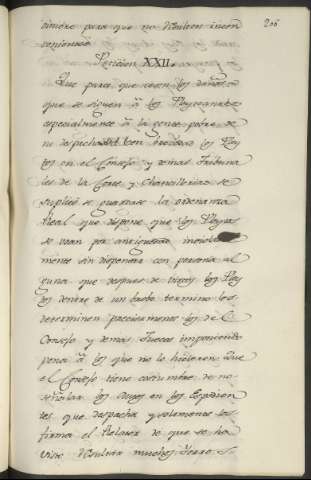 206
timére para que no resulten incon
venientes
Peticion XXII.
Que para que cesen los daños
que se siguen â los Pleyteantes
especialmente â la gente pobre de
no despacharse con brevedad los Pley
tos en el Consejo y demas Tribuna
les de la Corte y Chancillerias se
suplicó se guardase la ordenanza
Real que dispone que los Pleytos
se vean por antiguedad
mente sin dispensar con persona al
guna que despues de vistos los Pley
tos dentro de un breve termino los
determinen precisamente los de el
Consejo y demas Jueces imponiendo
pena â los que no lo hicieren Que
el Consejo tiene costumbre de no
señalar los Autos en los Expedien
tes que despacha y solamente los
firma el Relator de que se ha
visto resultar muchos Yerros S.